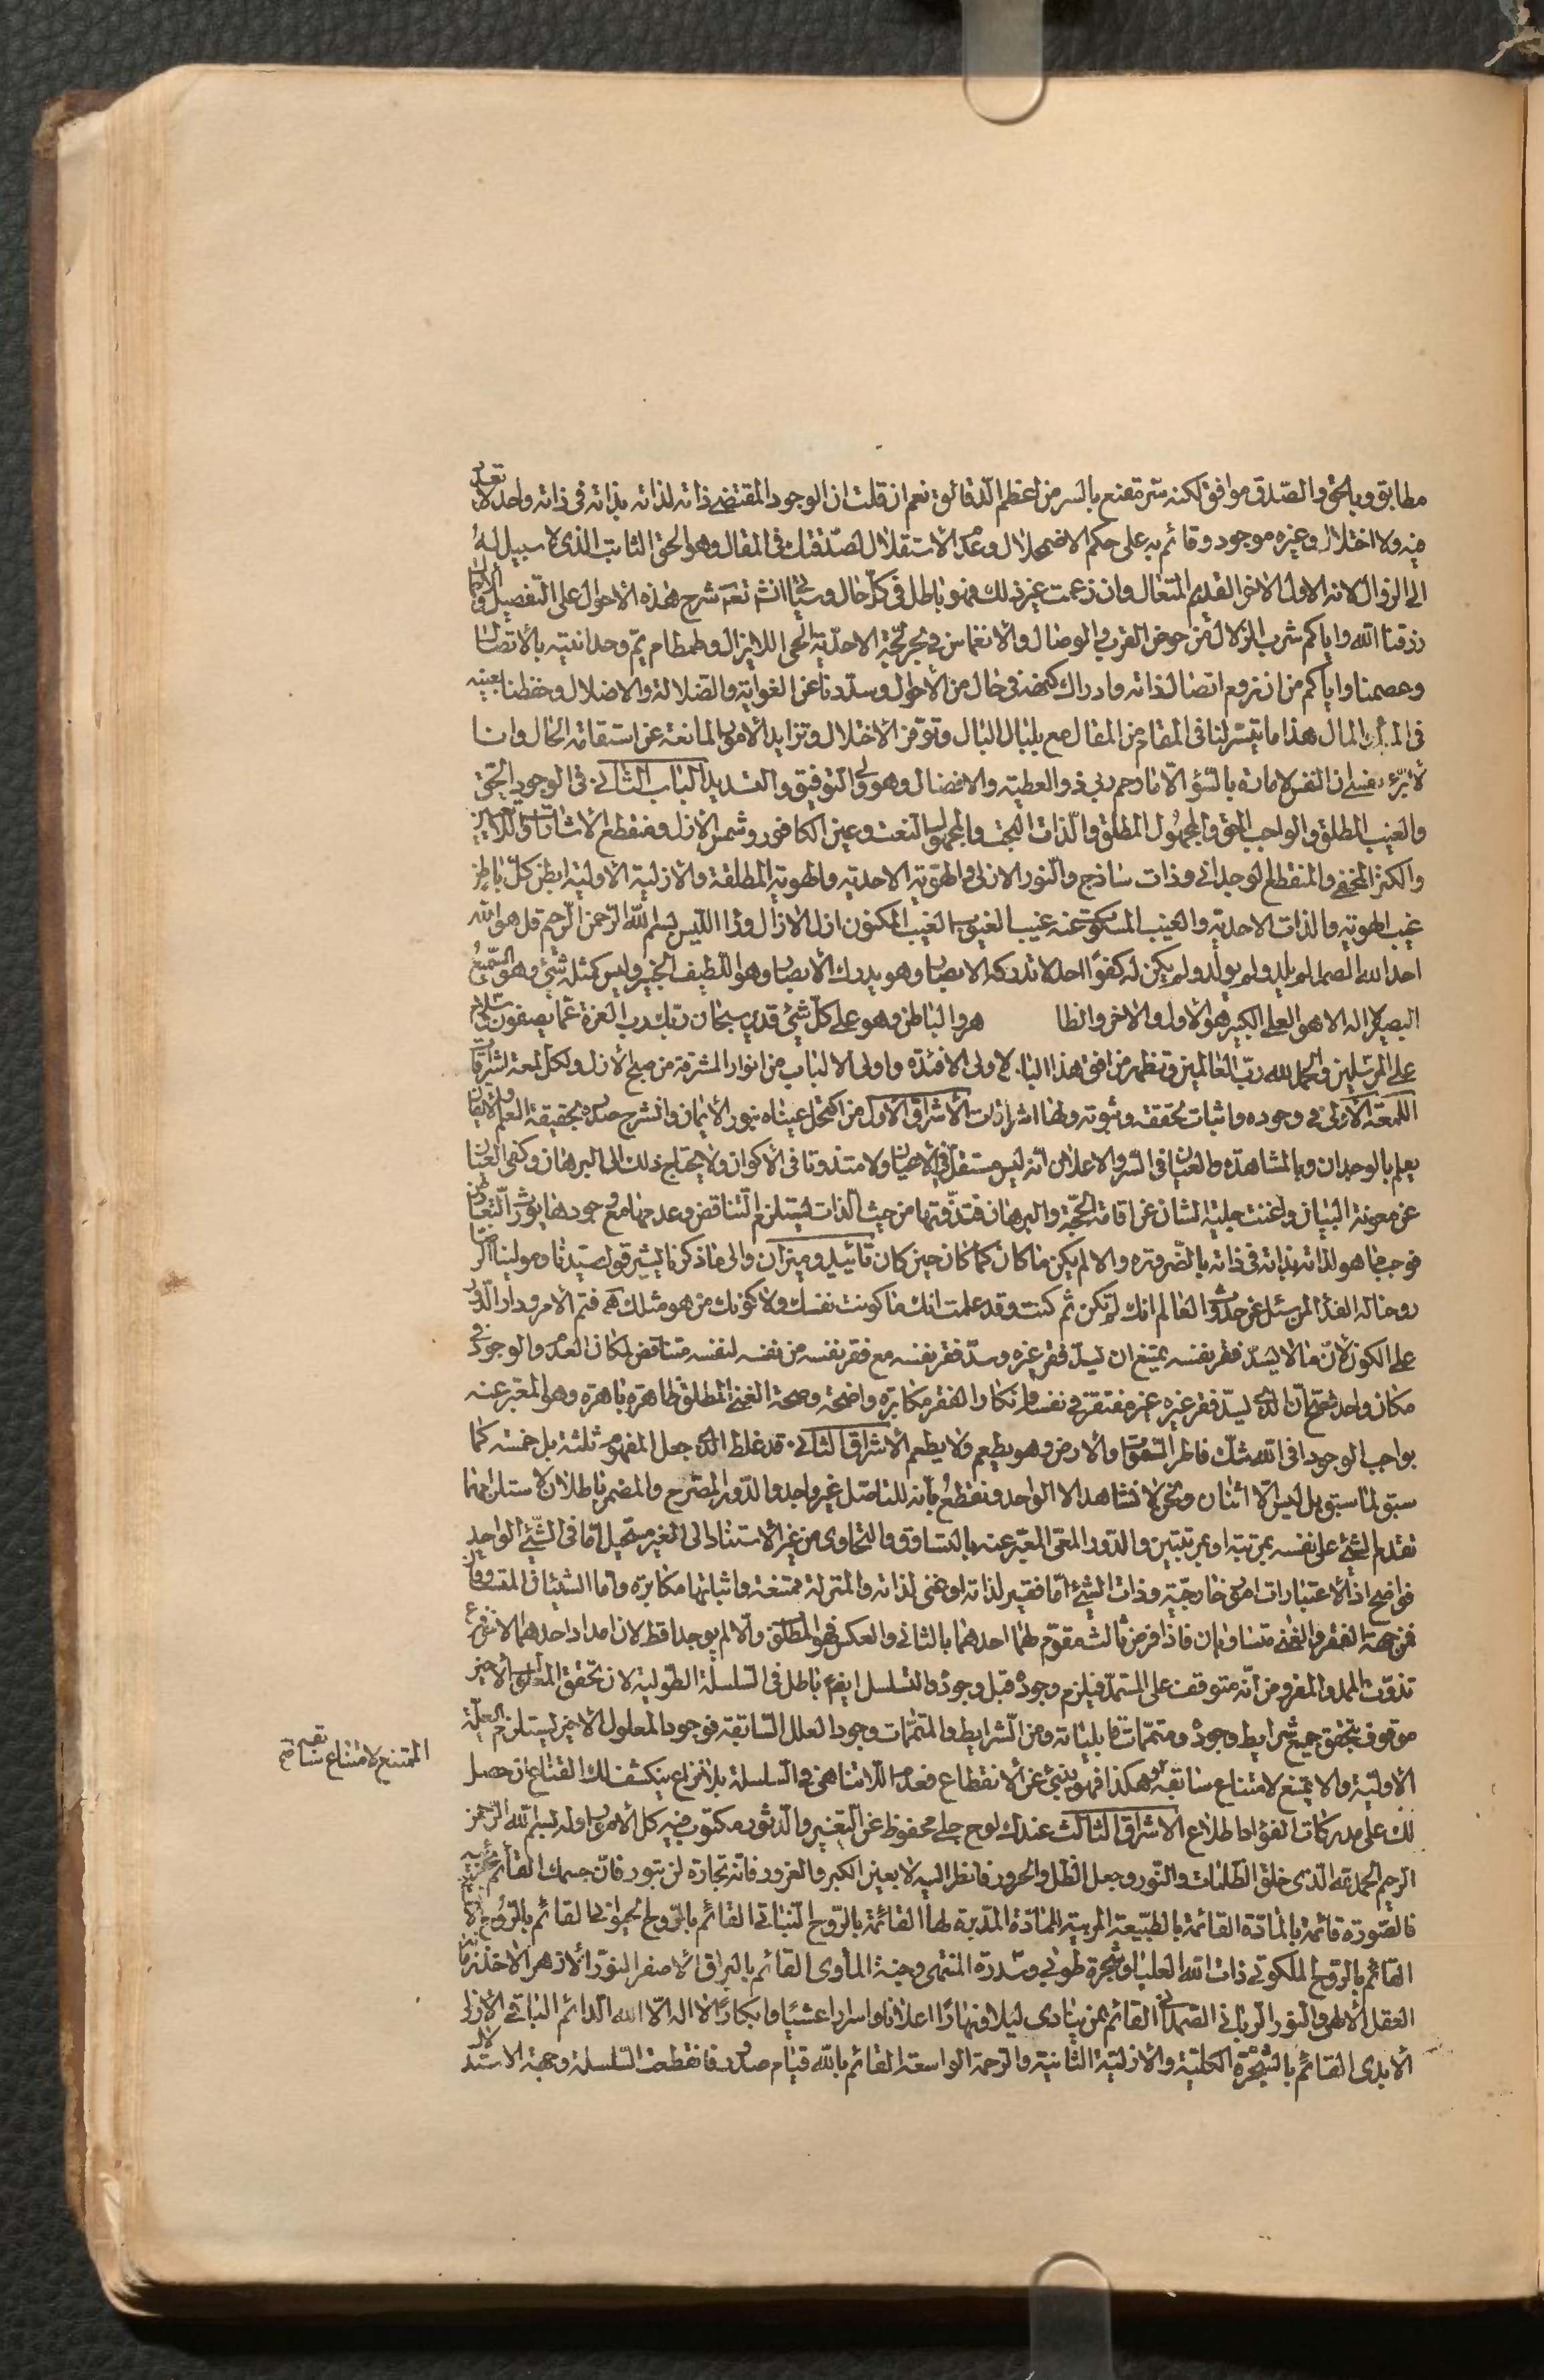 مطابق وبالحق والصدق موافق لكنه سر مقنع بالسر من اعظم الدقائق نعم ان قلت ان الوجود المقتضى ذاته لذاته بذاته فى ذاته واحد لا تعدد
فيه ولا اختلال وغيره موجود وقائم به على حكم الاضمحلال وعدم الاستقلال لصدقتك فى المقال وهو الحق الثابت الذى لا سبيل له
الى الزوال لانه الاول الاخر القديم المتعال وان زعمت غير ذلك فهو باطل فى كل حال وسياتى انشاء تعم شرح هذه الاحوال على التفصيل
رزقنا الله واياكم شرب الزلال من حوض القرب والوصال والانغماس فى بحر لجة الاحدية الحى اللايزال وطمطام يم وحدانيته بالاتصال
وعصمنا واياكم من ان نروم اتصال ذاته وادراك كنهه فى حال من الاحوال وسددنا عن الغواية والضلالة والاضلال وحفظنا بعينه
فى المبدء والمال هذا ما تيسر لنا فى المقام من المقال مع بلبال البال وتوفر الاختلال وتزايد الامور المانعة عن استقامة الحال وانا
لا ابرئ نفسى ان النفس لامارة بالسؤ الا ما رحم ربى ذو العطية والافضال وهو ولى التوفيق والتسديد الباب الثانى فى الوجود الحق
والغيب المطلق والواجب الحق والمجهول المطلق والذات البحت والمجهول النعت وعين الكافور وشمس الازل ومنقطع الاشارات واللاتعين
والكنز المخفى والمنقطع الوجدانى وذات ساذج والنور الازلى والهوية الاحدية والهوية المطلقة والازلية الاولية ابطن كل باطن
غيب الهوية والذات الاحدية والغيب المسكوت عنه غيب الغيوب الغيب المكنون ازل الازال وذا الليس بسم الله الرحمن الرحيم قل هو الله
احد الله الصمد لم يلد ولم يولد ولم يكن له كفوا احد لا تدركه الابصار وهو يدرك الابصار وهو اللطيف الخبير وليس كمثله شئ وهو السميع
البصير لا اله الا هو العلى الكبير هو الاول والاخر والظا هر والباطن وهو على كل شئ قدير سبحان ربك رب العزة عما يصفون وسلام
على المرسلين والحمد لله رب العالمين وتظهر من افق هذا الباب لاولى الافئدة واولى الالباب من انوار المشرقة من صبح الازل ولكل لمعة اشراقات
اللمعة الاولى فى وجوده واثبات تحققه وثبوته ولها اشراقات الاشراق الاول من اكتحل عيناه بنور الايمان وانشرح صدره بحقيقة العلم والايقان
يعلم بالوجدان وبالمشاهدة والعيان فى السر والاعلان انه ليس مستقل فى الاعيان ولا متذوتا فى الاكوان ولا يحتاج ذلك الى البرهان وكفى العيان
عن معونة البيان واغنت جلية الشان عن اقامة الحجة والبرهان فتذوتها من حيث الذات يستلزم التناقض وعدمها مع وجودها يورث التعاند
فوجب ما هو لذاته بذاته فى ذاته بالضرورة والا لم يكن ما كان كما كان حين كان تائيد وميزان والى ما ذكرنا يشير قول سيدنا ومولينا الرضا
روحنا له الفداء لمن سئل عن حدوث العالم انك لم تكن ثم كنت وقد علمت انك ما كونت نفسك ولا كونك من هو مثلك فتم الامر ودار الدور
على الكون لان ما لا يسد فقر نفسه يمتنع ان يسد فقر غيره وسد فقر نفسه مع فقر نفسه من نفسه لنفسه متناقض لمكان العدم والوجود فى
مكان واحد فصح ان الذى يسد فقر غيره غيره مفتقر فى نفسه وانكار الفقر مكابرة واضحة وصحة الغنى المطلق ظاهرة باهرة وهو المعبر عنه
بواجب الوجود افى الله شك فاطر السموات والارض وهو يطعم ولا يطعم الاشراق الثانى قد غلط الذى جعل المفهوم ثلثة بل خمسة كما
سبق لما سبق بل ليس الا اثنان ونحن لا نشاهد الا الواحد ونقطع بانه للتاصل غير واجد والدور المصرح والمضمر باطلان لاستلزامهما
تقدم الشئ على نفسه بمرتبة او بمرتبتين والدور المعى المعبر عنه بالتساوق والتحاوى من غير الاستناد الى الغير مستحيل اما فى الشئ الواحد
فواضح اذ الاعتبارات امور خارجية وذات الشئ اما فقير لذاته او غنى لذاته والمنزلة ممتنعة واثباتها مكابرة واما الشيئان المتساوقان
فمن جهة الفقر والغنى متساويان فاذا فرض ثالث مقوم لهما احدهما بالثانى والعكس فهو المطلق والا لم يوجدا قط لان امداد احدهما الاخر فرع
تذوت الممد والمفروض انه متوقف على المستمد فيلزم وجوده قبل وجوده والتسلسل ايضا باطل فى السلسلة الطولية لان تحقق المعلول الاخير
موقوف بتحقق جميع شرايط وجوده ومتممات قابلياته ومن الشرايط والمتممات وجود العلل السابقة فوجود المعلول الاخير يستلزم العلة
الاولية والا يمتنع لامتناع سابقه وهكذا فهو ينبئ عن الانقطاع فعدم اللاتناهى فى السلسلة بلا نزاع ينكشف لك القناع ان حصل
لك على مدركات الفؤاد اطلاع الاشراق الثالث عندك لوح جلى محفوظ عن التغيير والدثور مكتوب فيه كل الامور اوله بسم الله الرحمن
الرحيم الحمد لله الذى خلق الظلمات والنور وجعل الظل والحرور فانظر اليه لا بعين الكبر والغرور فانه تجارة لن تبور فان جسمك القائم
فالصورة قائمة بالمادة القائمة بالطبيعة المربية المادة المدبرة لها القائمة بالروح النباتى القائم بالروح الحيوانى القائم بالروح
القائم بالروح الملكوتى ذات الله العليا وشجرة طوبى وسدرة المنتهى وجنة الماوى القائم بالبراق الاصفر النور الازهر
العقل الالهى والنور الربانى الصمدانى القائم بمن ينادى ليلا ونهارا اعلانا واسرارا عشيا وابكارا لا اله الا الله الدائم الباقى الازلى
الابدى القائم بالشجرة الكلية والازلية الثانية والرحمة الواسعة القائم بالله قيام صدور فانقطعت السلسلة وجهة الاستدلال
الممتنع لامتناع سابقه